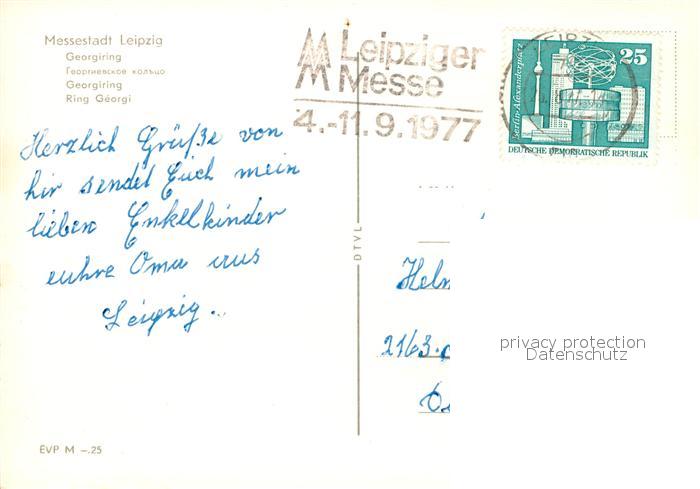 Messestadt Leipzig
Georgiring
Георгиевское кольцо
Georgiring
Ring Géorgi
Leipziger
Messe
4.-11.9.1977
25
Berlin-Alexanderplatz
DEUTSCHE DEMOKRATISCHE REPUBLIK
Herzlich Grüße von
hir sendet Euch mein
lieben Enkelkinder
euhre Oma aus
Leipzig..
DTVL
2163
privacy protection
Datenschutz
EVP M –.25